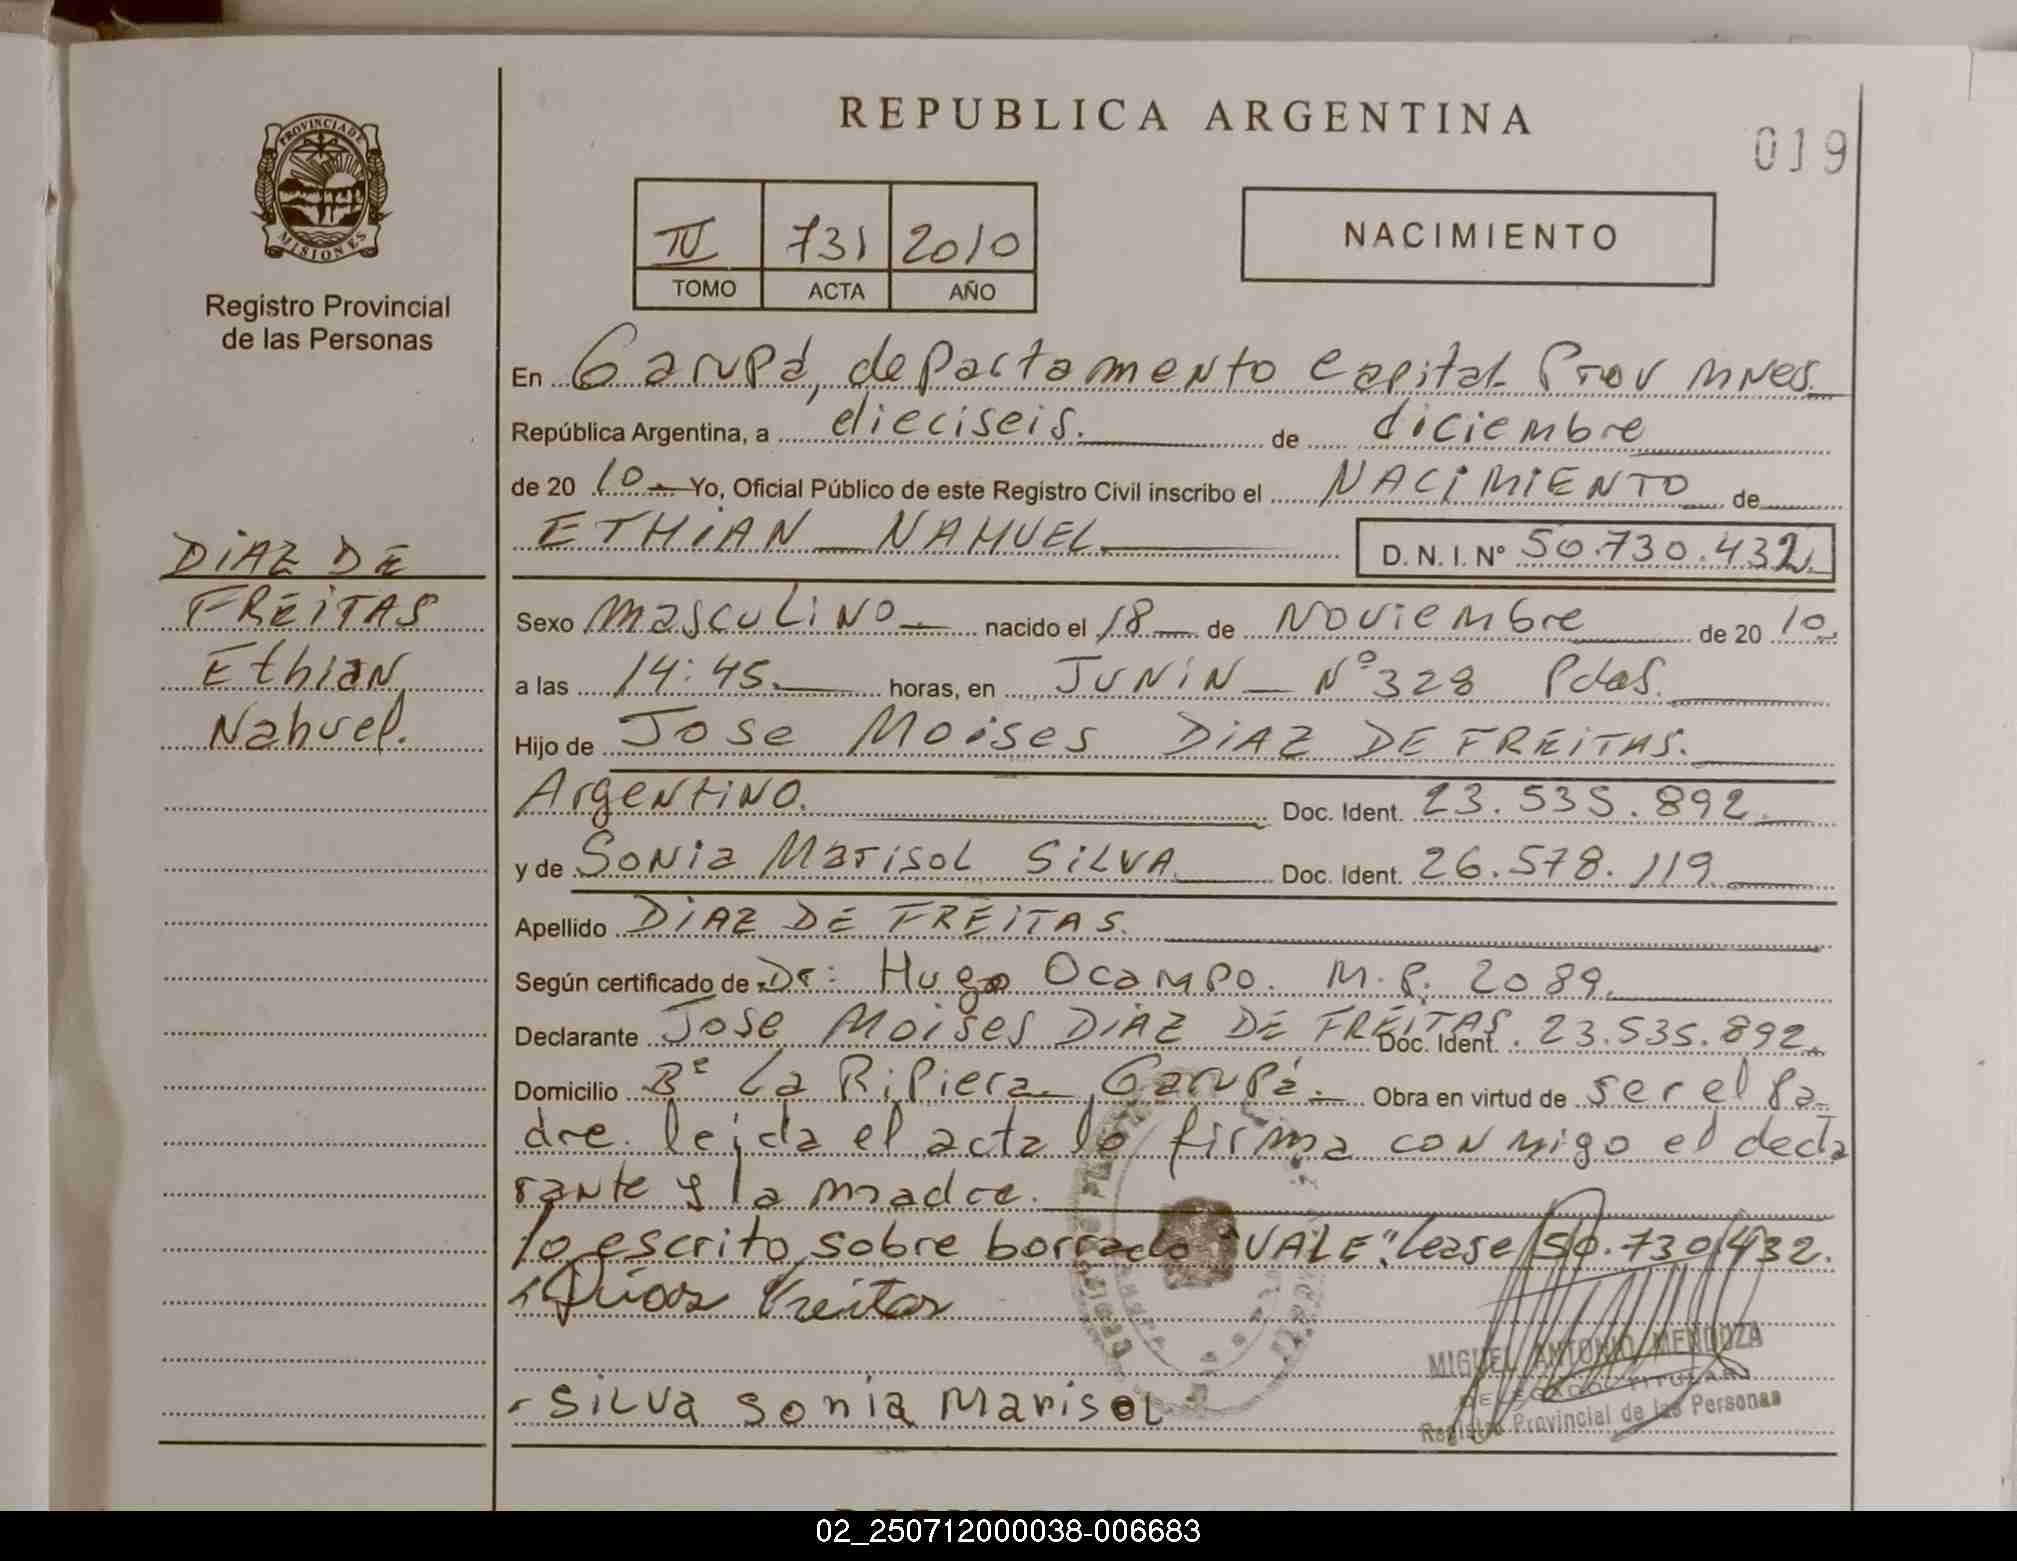 REPUBLICA ARGENTINA
019
PROVINCIA DE
MISIONES
Registro Provincial
de las Personas
IV 731 2010
TOMO ACTA AÑO
NACIMIENTO
En Garupá, departamento Capital Prov Mnes.
República Argentina, a dieciseis. de diciembre
de 20 10 Yo, Oficial Público de este Registro Civil inscribo el NACIMIENTO de
ETHIAN NAHUEL D. N. I. Nº 50.730.432.
DIAZ DE
FREITAS
Ethian
Nahuel.
Sexo Masculino nacido el 18 de Noviembre de 20 10
a las 14:45. horas, en JUNIN Nº 328 Pdas.
Hijo de Jose Moises DIAZ DE FREITAS.
Argentino. Doc. Ident. 23.535.892
y de Sonia Marisol SILVA Doc. Ident. 26.578.119
Apellido DIAZ DE FREITAS.
Según certificado de Dr: Hugo Ocampo. M.P. 2089.
Declarante Jose Moises DIAZ DE FREITAS. Doc. Ident. 23.535.892.
Domicilio Bº La Ripiera Garupá. Obra en virtud de ser el Pa-
dre. leida el acta lo firma conmigo el decla
rante y la madre.
lo escrito sobre borrado "VALE". lease 50.730.432.
Diaz Freitas
MIGUEL ANTONIO MENDOZA
DELEGADO TITULAR
Registro Provincial de las Personas
Silva Sonia Marisol
02_250712000038-006683